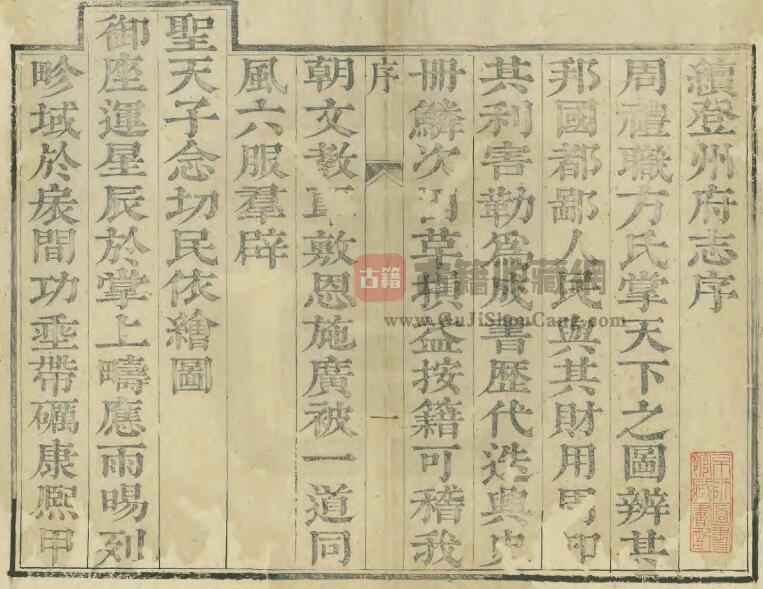 續登州府志序
周禮職方氏掌天下之圖辨其
邦國都鄙人民與其財用
其利害勒爲成書歷代迭興史
冊鱗次革損益按籍可稽我
序
一
朝文教敷恩施廣被一道同
風六服羣辟
聖天子念切民依繪圖
御座運星辰於掌上疇應雨暘列
畛域於扆間功垂帶礪康熙甲
古籍
www.GuJiShouCang.com